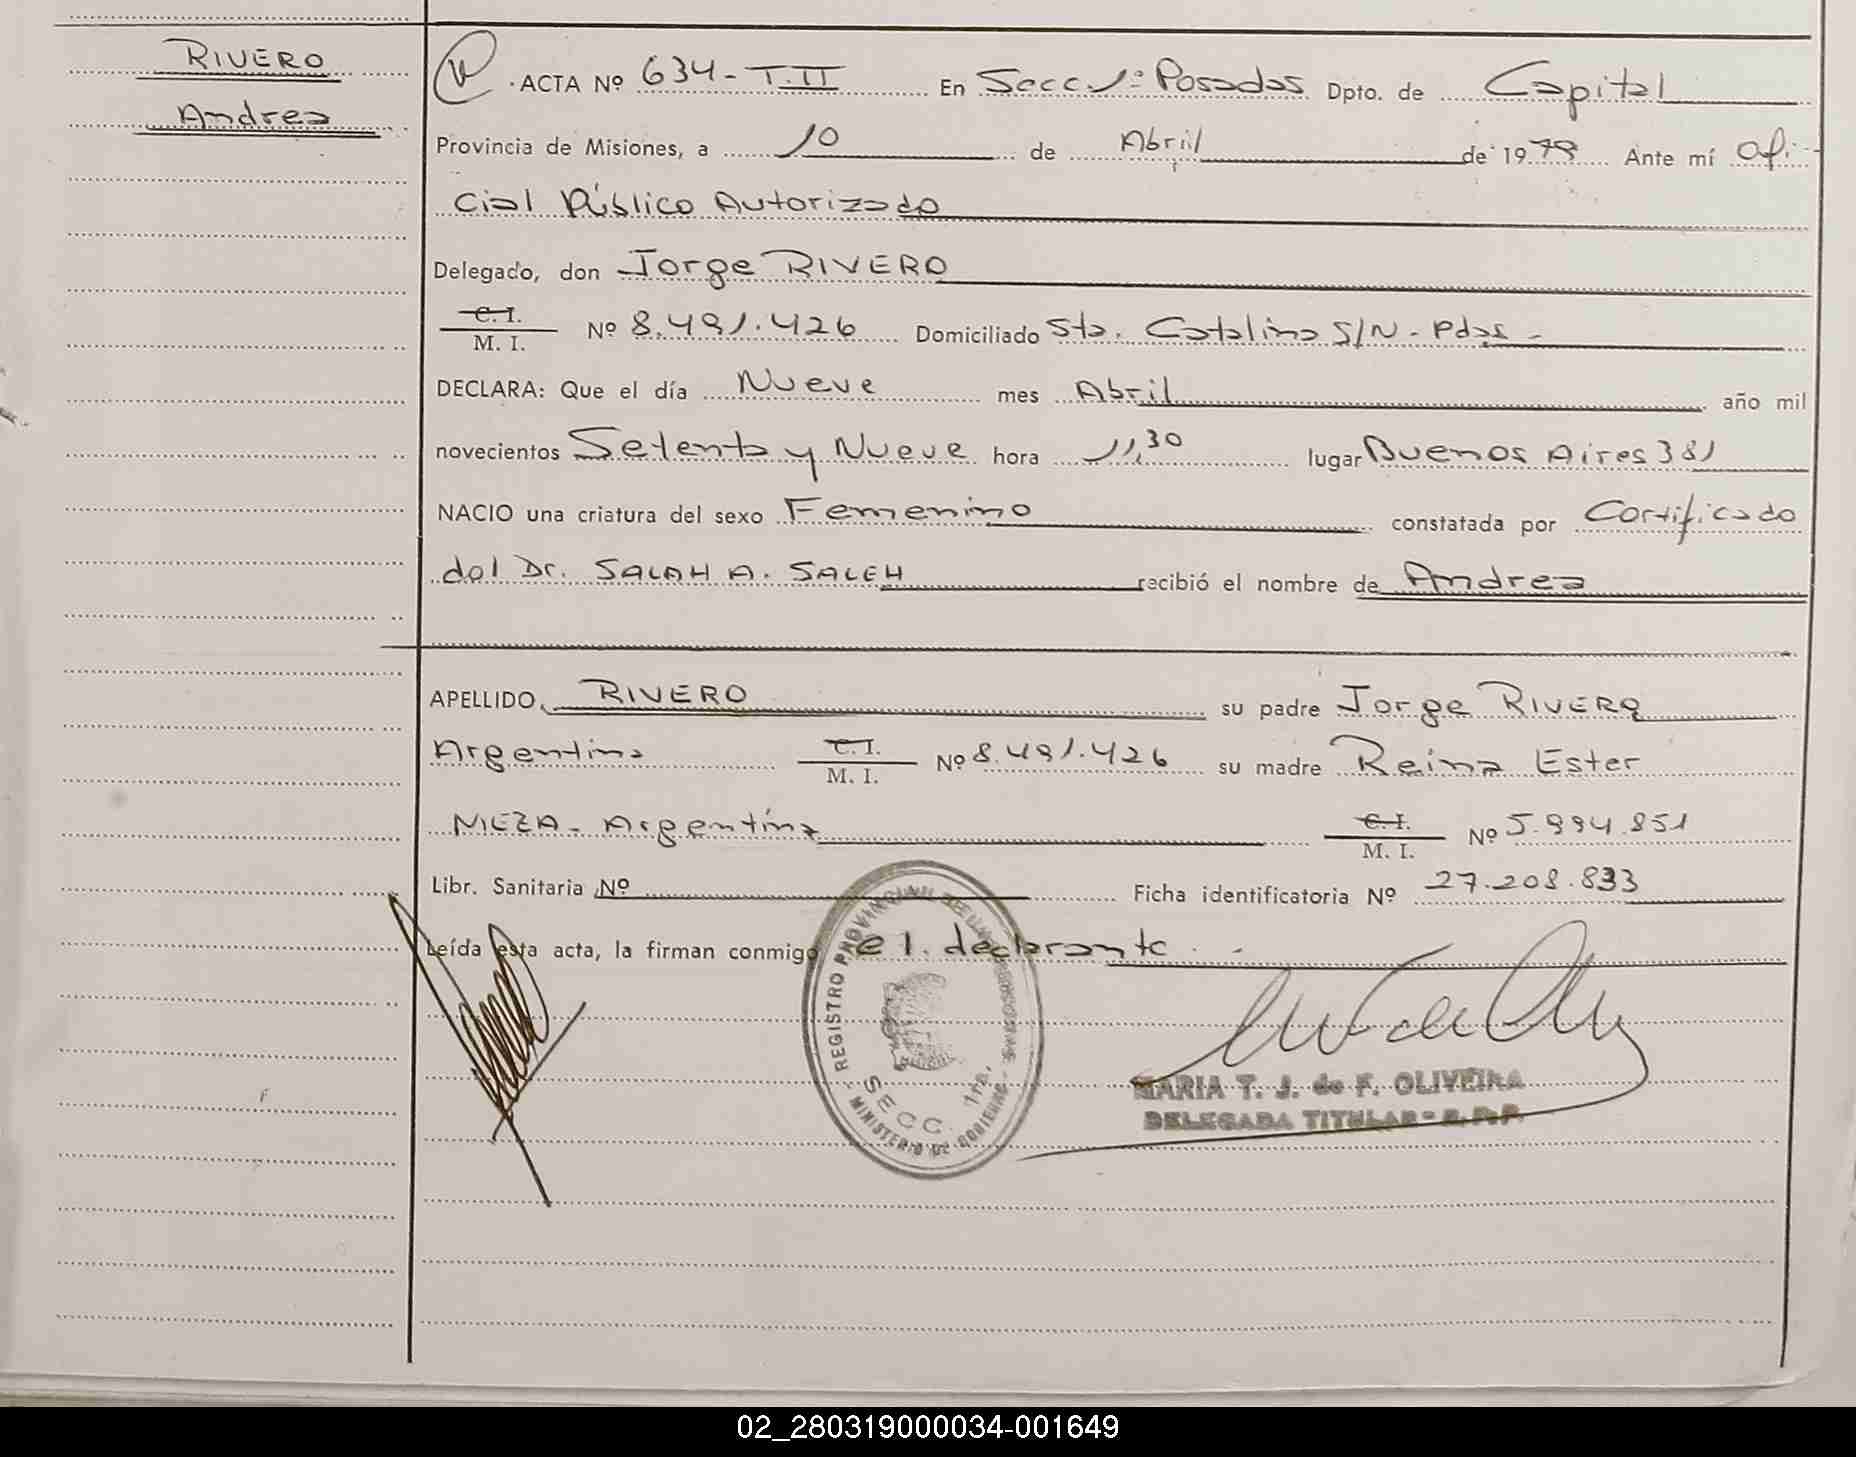 RIVERO
Andrea
ACTA Nº 634 - T. II En Secc 1ª Posadas Dpto. de Capital
Provincia de Misiones, a 10 de Abril de 1979 Ante mí Ofi-
cial Público Autorizado
Delegado, don Jorge RIVERO
C. I.
M. I. Nº 8.491.426 Domiciliado Sta. Catalina S/N - Pdas -
DECLARA: Que el día Nueve mes Abril año mil
novecientos Setenta y Nueve hora 11,30 lugar Buenos Aires 381
NACIO una criatura del sexo Femenino constatada por Certificado
del Dr. SALAH A. SALEH recibió el nombre de Andrea
APELLIDO RIVERO su padre Jorge RIVERO
Argentino C. I. M. I. Nº 8.491.426 su madre Reina Ester
MEZA - Argentina C. I. M. I. Nº 5.994.851
Libr. Sanitaria Nº Ficha identificatoria Nº 27.208.833
Leída esta acta, la firman conmigo el declarante -
REGISTRO PROVINCIAL DE LAS PERSONAS
SECC. 1ra.
MINISTERIO DE GOBIERNO
MARIA T. J. de F. OLIVEIRA
DELEGADA TITULAR - R.P.P.
02_280319000034-001649